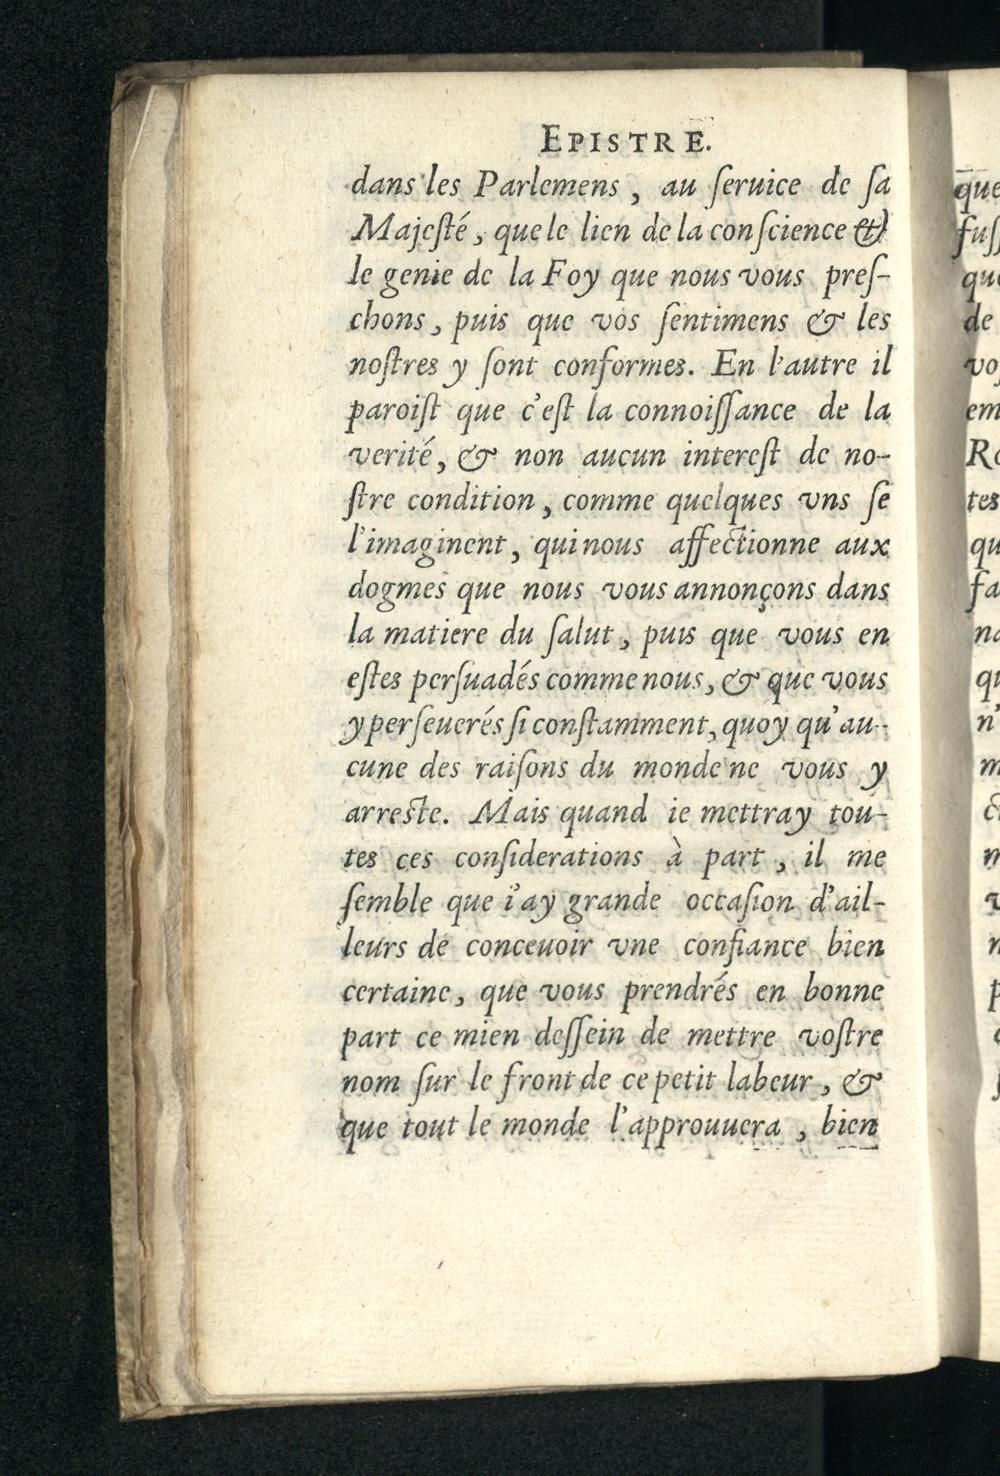 EPISTRE.
dans les Parlemens, au ſeruice de ſa
Majeſté, que le lien de la conſcience &
le genie de la Foy que nous vous preſ-
chons, puis que vos ſentimens & les
noſtres y ſont conformes. En l'autre il
paroiſt que c'eſt la connoiſſance de la
verité, & non aucun intereſt de no-
ſtre condition, comme quelques vns ſe
l'imaginent, qui nous affectionne aux
dogmes que nous vous annonçons dans
la matiere du ſalut, puis que vous en
eſtes perſuadés comme nous, & que vous
y perſeuerés ſi conſtamment, quoy qu'au-
cune des raiſons du monde ne vous y
arreste. Mais quand ie mettray tou-
tes ces conſiderations à part, il me
ſemble que i'ay grande occaſion d'ail-
leurs de conceuoir vne confiance bien
certaine, que vous prendrés en bonne
part ce mien deſſein de mettre voſtre
nom ſur le front de ce petit labeur, &
que tout le monde l'approuuera, bien
que
fuſ
que
de
voſ
em
Ro
tes
qu
fa
na
qu
n'
m